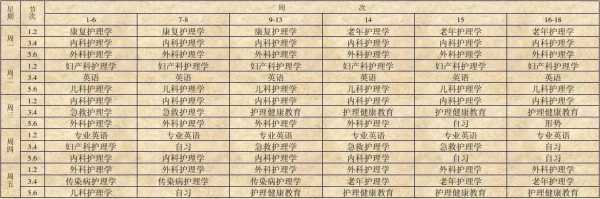 星期 节次 周 次
1-6 7-8 9-13 14 15 16-18
周一 1.2 康复护理学 康复护理学 康复护理学 老年护理学 老年护理学 老年护理学
3.4 内科护理学 内科护理学 内科护理学 内科护理学 内科护理学 内科护理学
5.6 外科护理学 外科护理学 外科护理学 外科护理学 外科护理学 外科护理学
周二 1.2 妇产科护理学 妇产科护理学 妇产科护理学 妇产科护理学 妇产科护理学 妇产科护理学
3.4 英语 英语 英语 英语 英语 英语
5.6 儿科护理学 儿科护理学 儿科护理学 儿科护理学 儿科护理学 儿科护理学
周三 1.2 内科护理学 内科护理学 内科护理学 内科护理学 内科护理学 内科护理学
3.4 急救护理学 急救护理学 护理健康教育 护理健康教育 护理健康教育 护理健康教育
5.6 外科护理学 外科护理学 外科护理学 外科护理学 自习
周四 1.2 专业英语 专业英语 专业英语 专业英语 专业英语 专业英语
3.4 妇产科护理学 自习 急救护理学 急救护理学 急救护理学 自习
5.6 内科护理学 内科护理学 内科护理学 内科护理学 自习 自习
周五 1.2 外科护理学 外科护理学 外科护理学 外科护理学 外科护理学 外科护理学
3.4 传染病护理学 传染病护理学 传染病护理学 老年护理学 老年护理学 老年护理学
5.6 儿科护理学 自习 护理健康教育 护理健康教育 护理健康教育 护理健康教育